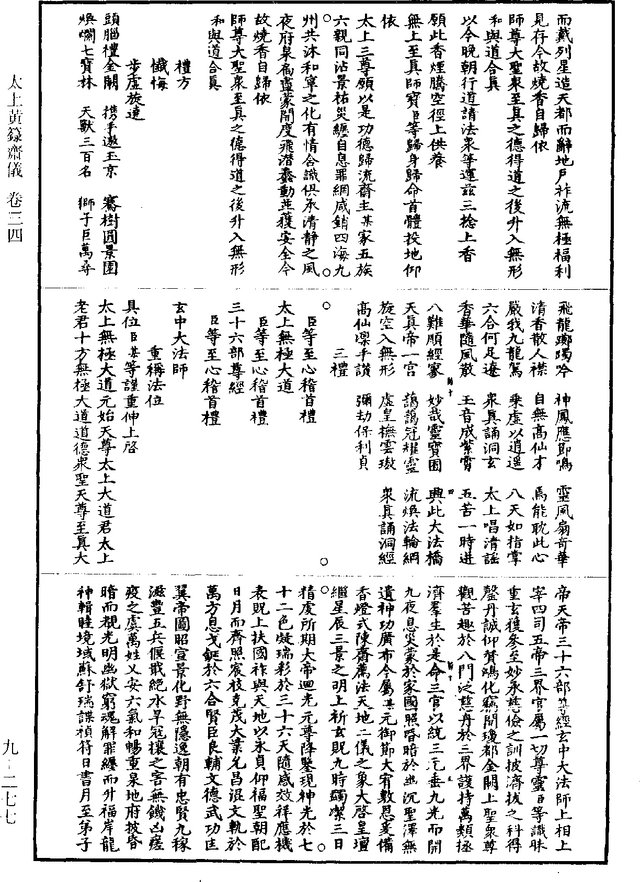 太上黃籙齋儀　卷三四
而戴列星造天都而辭地戶祚流無極福利
見存今故燒香自歸依
師尊大聖衆至真之德得道之後升入無形
和與道合真
以今晚朝行道請法衆等運茲三捻上香
願此香煙騰空徑上供養
無上至真師寶臣等歸身歸命首體投地仰
依
太上三尊願以是功德歸流齋主某家五族
六親同沾景祐災纏自息罪網咸銷四海九
州共沐和寧之化有情含識俱承清靜之風
夜府泉扃靈蒙開度飛潛蠢動並獲安全今
故燒香自歸依
師尊大聖衆至真之德得道之後升入無形
和與道合真
禮方
懺悔
步虛旋遶
頭腦禮金闕　携手邀玉京　騫樹圓景園
煥爛七寶林　天獸三百名　獅子巨萬尋
飛龍躑躅吟　神鳳應節鳴　靈風扇奇華
清香散人襟　自無高仙才　焉能耽此心
嚴我九龍駕　乘虛以逍遥　八天如指掌
六合何足遼　衆真誦洞玄　太上唱清謠
香華隨風散　玉音成紫霄　五苦一時迸
八難順經寥　妙哉靈寶囿　興此大法橋
天真帝一宮　藹藹冠耀靈　流煥法輪綱
旋空入無形　虛皇撫雲璈　衆真誦洞經
高仙拱手讚　彌劫保利貞
三禮
臣等至心稽首禮
太上無極大道
臣等至心稽首禮
三十六部尊經
臣等至心稽首禮
玄中大法師
重稱法位
具位臣某等謹重伸上啓
太上無極大道元始天尊太上大道君太上
老君十方無極大道道德衆聖天尊至真大
帝天帝三十六部尊經玄中大法師上相上
宰四司五帝三界官屬一切尊靈臣等識昧
重玄獲參至妙承慈儉之訓披濟拔之科得
罄丹誠仰贊鴻化竊聞瓊都金闕上聖衆尊
觀苦趣於八門泛慈舟於三界護持萬類拯
濟羣生於是命三官以統三炁垂九光而開
九夜息災蒙於家國照昏暗於幽沉聖澤無
遺神功廣布今屬某元御節大宥敷恩爰備
香燈式陳齋薦法天地二儀之象大啓皇壇
繼星辰三景之明上祈玄貺九時蠲潔三日
精虔所期大帝迴光元尊降鑒現神光於七
十二色凝瑞彩於三十六天隨感效祥應機
表貺上扶國祚與天地以永貞仰福聖朝配
日月而齊照宸枝克茂大業允昌混文軌於
萬方息戈鋋於六合賢臣良輔文德武功匡
翼帝圖昭宣景化野無隱逸朝有忠賢九稼
滋豐五兵偃戢絕水旱寇攘之害無饑凶瘥
疫之虞萬姓乂安六氣和暢重泉地府披昏
暗而覩光明幽獄窮魂解罪纏而升福岸龍
神輯睦境域蘇舒瑞諜禎符日書月至第子
九－二七七